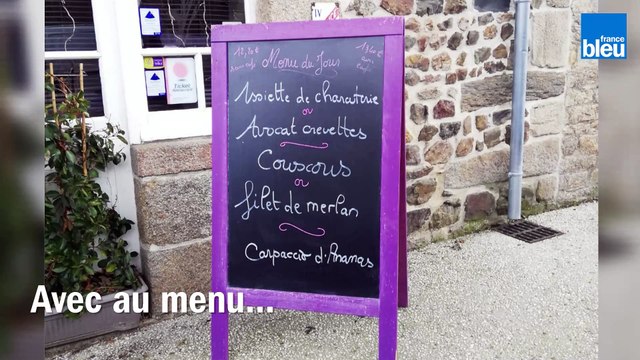 france
bleu
Menu du Jour
Assiette de charcuterie
ou
Avocat crevettes
Couscous
ou
filet de merlan
Carpaccio d'Ananas
Avec au menu...